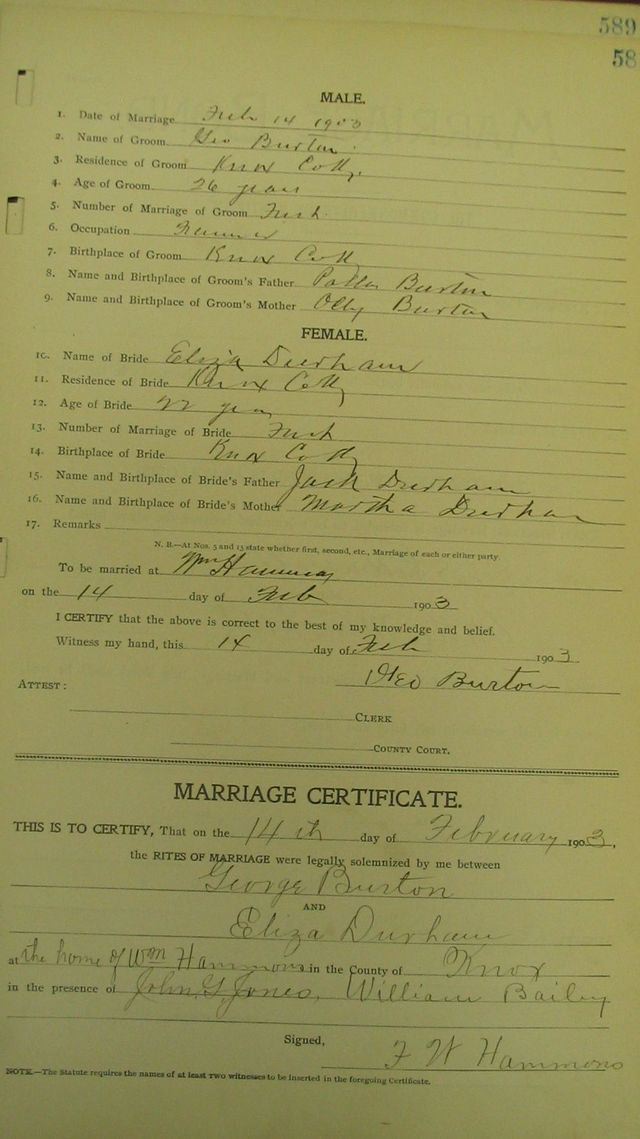 589
58
MALE.
1. Date of Marriage Feb 14 1903
2. Name of Groom Geo Burton
3. Residence of Groom Knox Co Ky
4. Age of Groom 26 years
5. Number of Marriage of Groom First
6. Occupation Farmer
7. Birthplace of Groom Knox Co Ky
8. Name and Birthplace of Groom's Father Burton
9. Name and Birthplace of Groom's Mother Olly Burton
FEMALE.
10. Name of Bride Eliza Durham
11. Residence of Bride Knox Co Ky
12. Age of Bride 22 years
13. Number of Marriage of Bride First
14. Birthplace of Bride Knox Co Ky
15. Name and Birthplace of Bride's Father Jack Durham
16. Name and Birthplace of Bride's Mother Martha Durham
17. Remarks
N. B.—At Nos. 5 and 13 state whether first, second, etc., Marriage of each or either party.
To be married at Wm Hammons
on the 14 day of Feb 1903
I CERTIFY that the above is correct to the best of my knowledge and belief.
Witness my hand, this 14 day of Feb 1903
Geo Burton
ATTEST:
CLERK
COUNTY COURT.
MARRIAGE CERTIFICATE.
THIS IS TO CERTIFY, That on the 14th day of February 1903,
the RITES OF MARRIAGE were legally solemnized by me between
George Burton
AND
Eliza Durham
at the home of Wm Hammons in the County of Knox
in the presence of John G Jones, William Bailey
Signed,
F W Hammons
NOTE.—The Statute requires the names of at least two witnesses to be inserted in the foregoing Certificate.